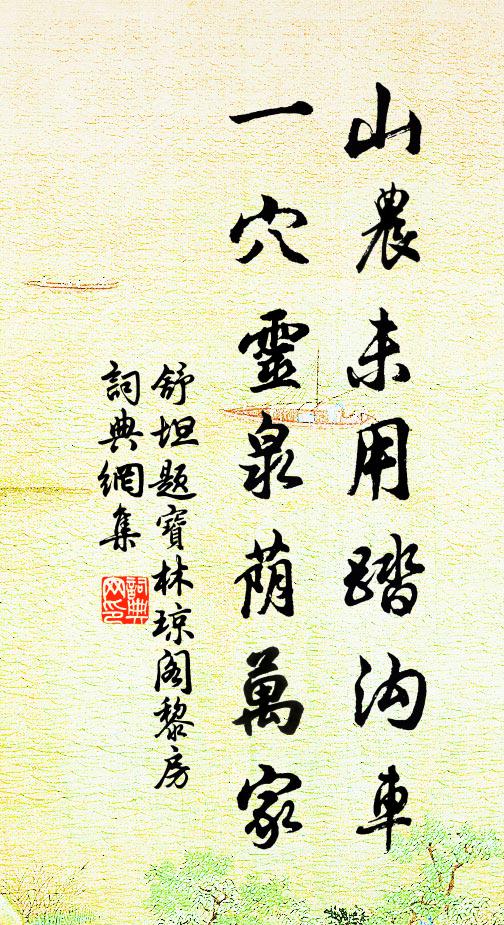 山農未用踏沟車
一穴靈泉荫萬家
舒坦题寶林琼阁黎房
詞典網集
詞典網印